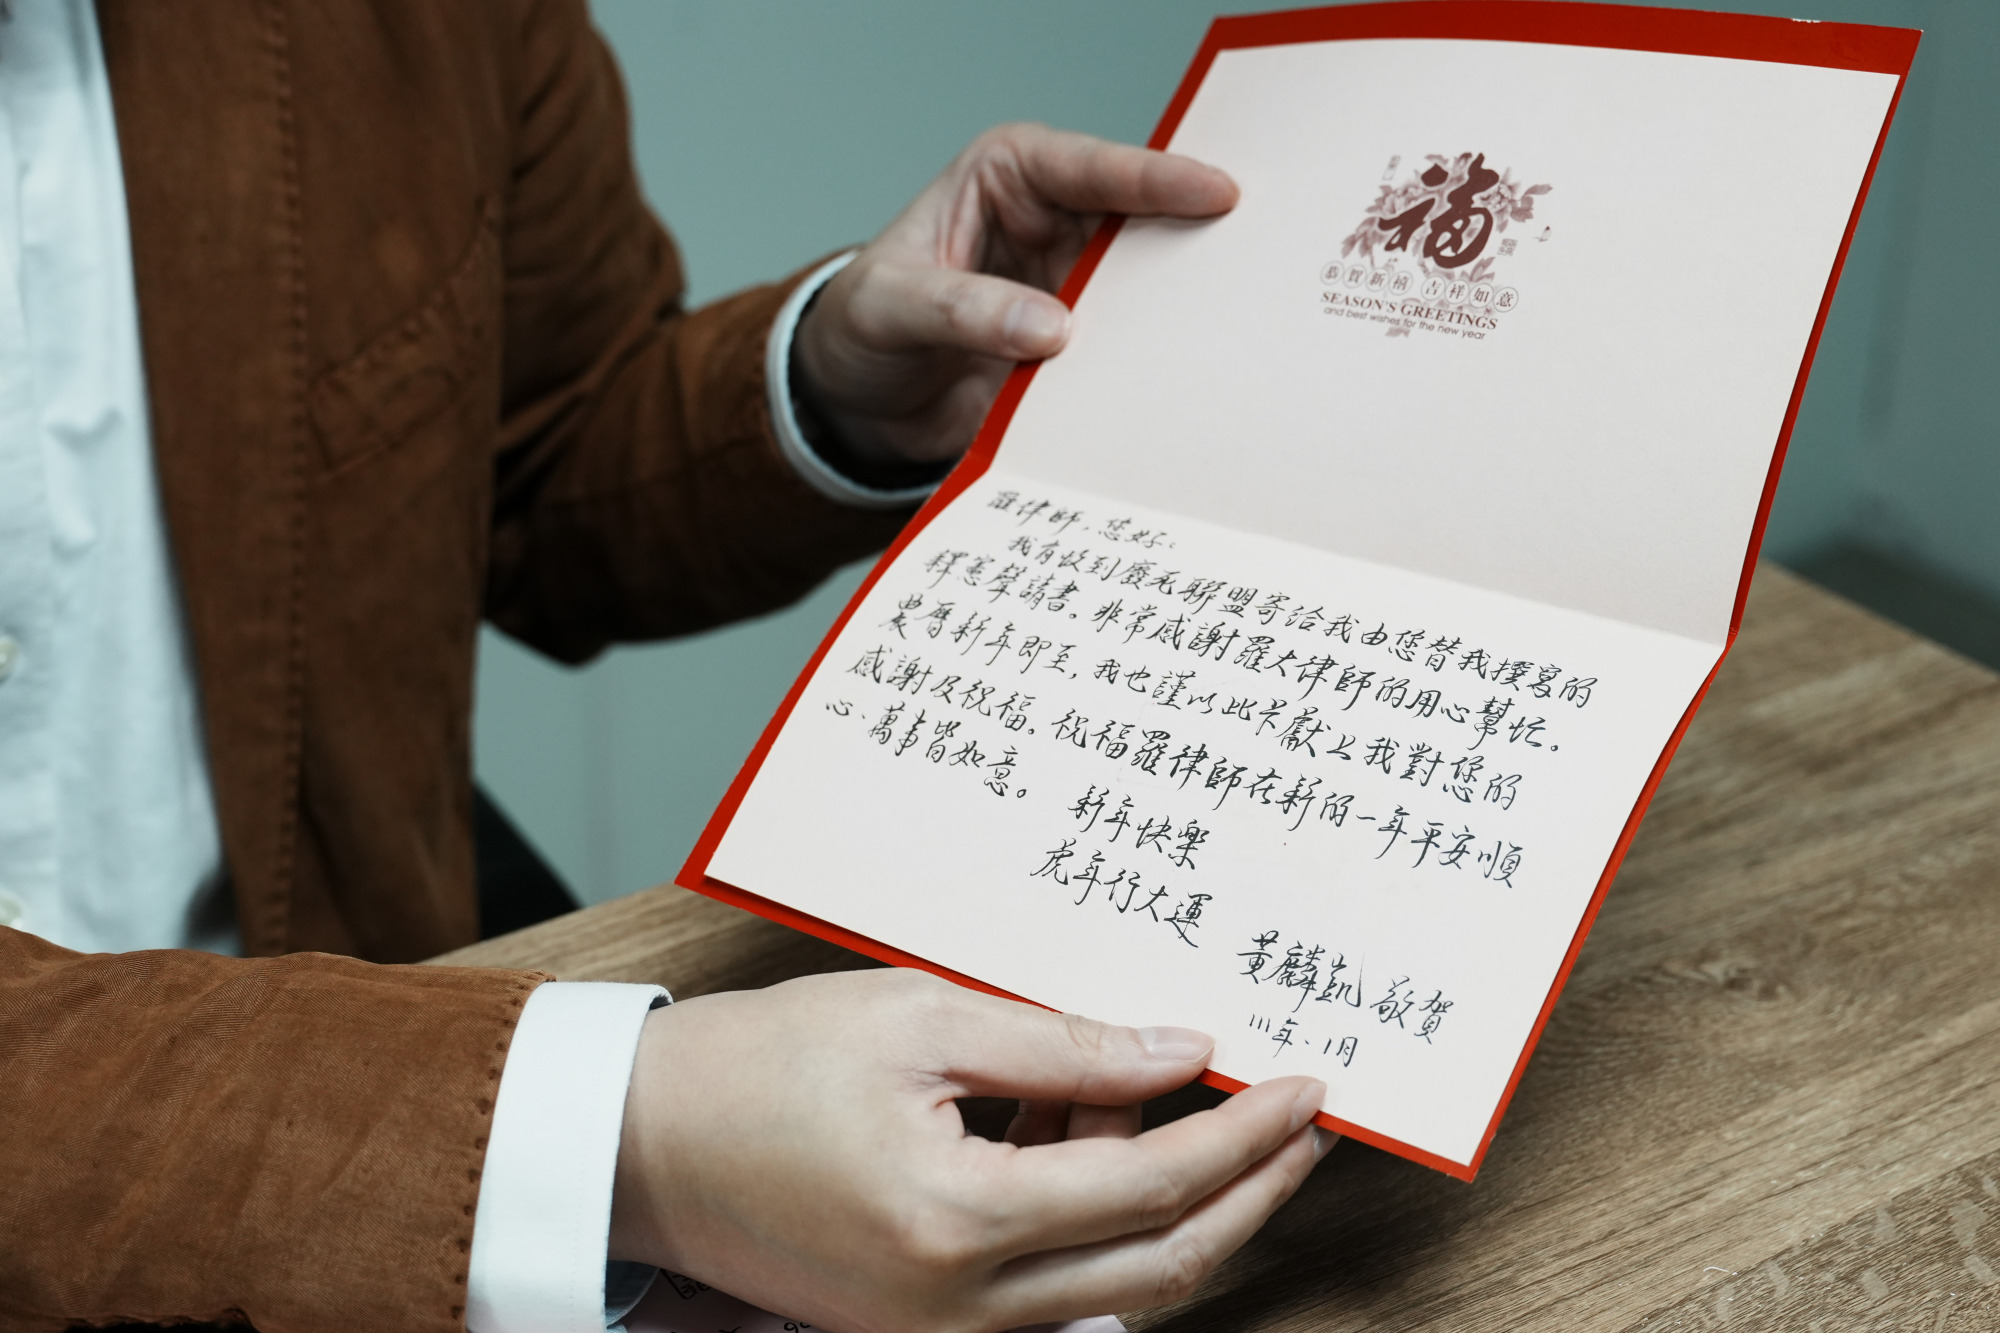 福
恭賀新禧 吉祥如意
SEASON'S GREETINGS
and best wishes for the new year
羅律師,您好:
我有收到廢死聯盟寄給我由您替我撰寫的
釋憲聲請書。非常感謝羅大律師的用心幫忙。
農曆新年即至,我也謹以此卡獻上我對您的
感謝及祝福。祝福羅律師在新的一年平安順
心、萬事皆如意。
新年快樂
虎年行大運
黃麟凱 敬賀
111年.1月